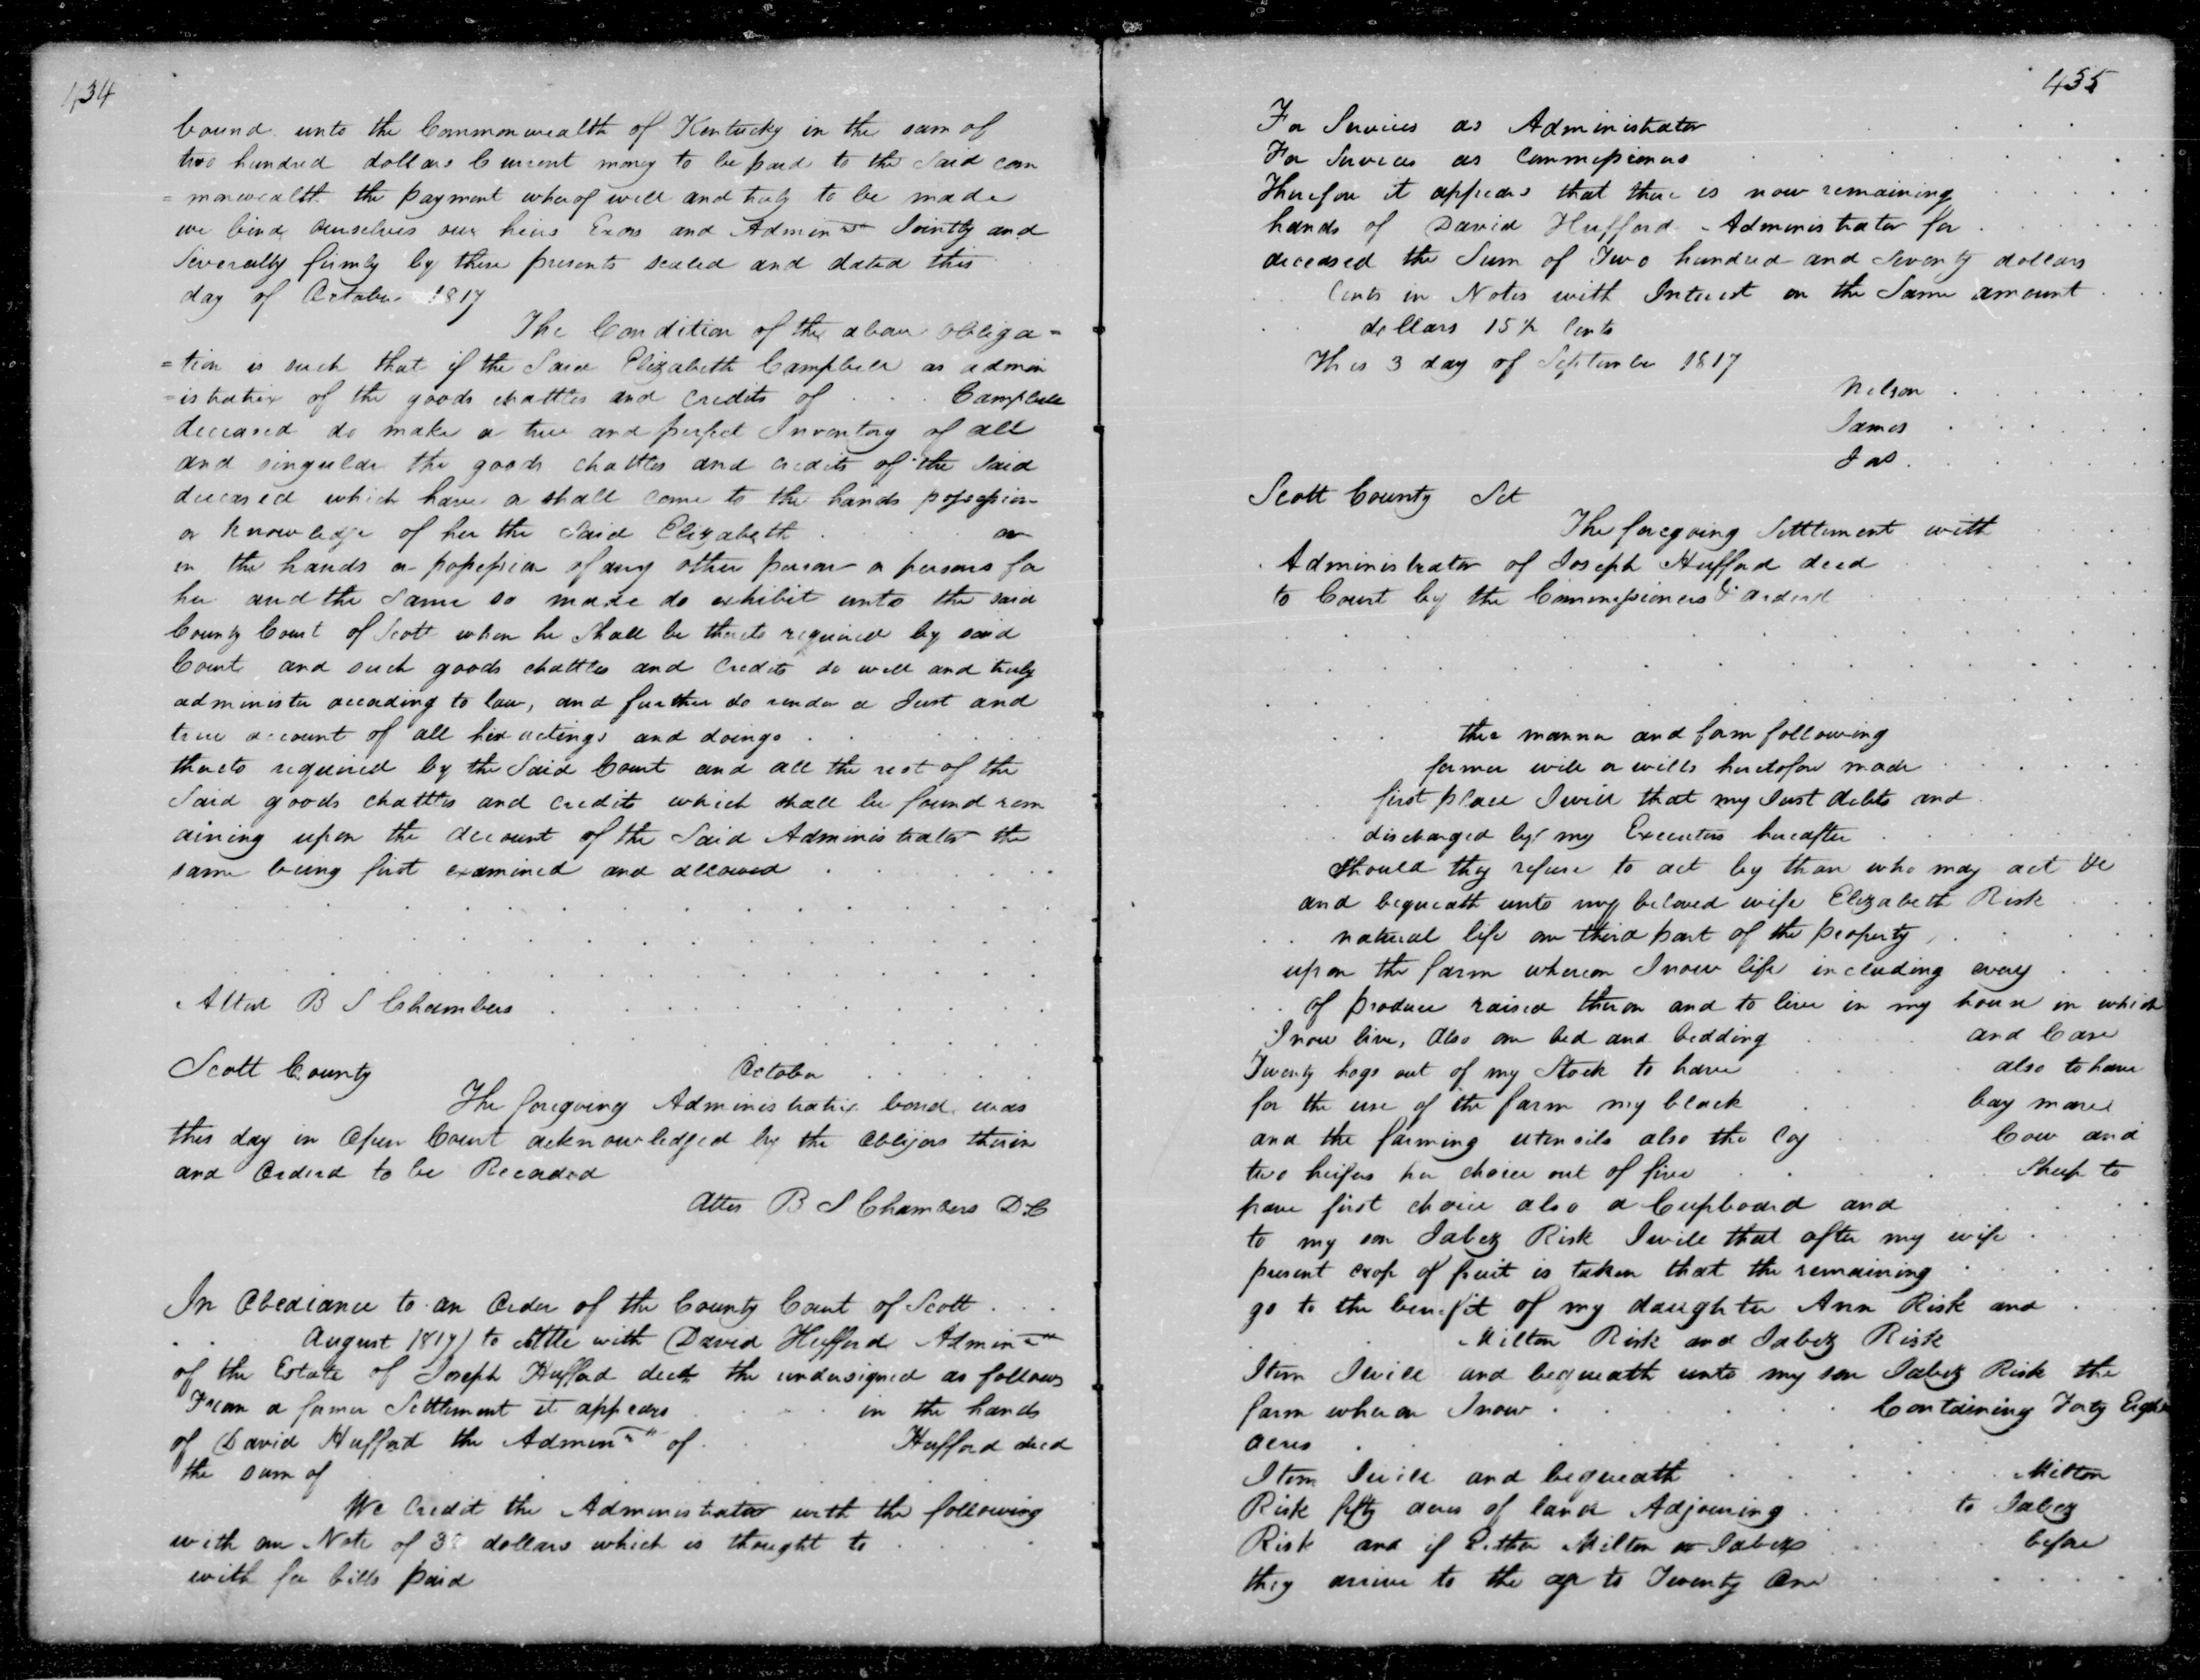 434
bound unto the Commonwealth of Kentucky in the sum of
two hundred dollars Current money to be paid to the Said com
= monwealth the payment wherof well and truly to be made
we bind ourselves our heirs Exors and Admin Jointly and
Severally firmly by these presents sealed and dated this
day of October 1817
The Condition of the above obliga =
=tion is such that if the Said Elizabeth Campbell as admin
=istratrix of the goods chattles and credits of . . . Campbell
deceased do make a true and perfect Inventory of all
and singular the goods chattles and credits of the Said
deceased which have or shall come to the hands possession
or knowledge of her the Said Elizabeth . . . or
in the hands or possession of any other person or persons for
her and the same so made do exhibit unto the said
County Court of Scott when he shall be thereto required by said
Court and such goods chattles and credits do well and truly
administer according to law, and further do render a Just and
true account of all her actings and doings . . . . .
thereto required by the Said Court and all the rest of the
Said goods chattles and credits which shall be found rem
aining upon the account of the Said Administrator the
same being first examined and allowed . . . . .
Attest B S Chambers . . . . . . .
Scott County October . . . . .
The foregoing Administratrix bond was
this day in Open Court acknowledged by the Obligors therein
and Orderd to be Recorded
Attes B S Chambers D C
In Obediance to an Order of the County Court of Scott . . .
. . August 1817) to settle with (David Hufford Admin
of the Estate of Joseph Hufford decd the undersigned as follows
From a former Settlement it appears . . . . in the hands
of David Hufford the Admin of . . . . Hufford decd
the sum of
We Credit the Administrator with the following
with one Note of 3 dollars which is thought to . . . .
with for bills paid
435
For Services as Administrator . . . .
For Services as Commissioners . . . . . .
Therefore it appears that there is now remaining . . . . .
hands of David Hufford Administrator for . . . . .
deceased the Sum of Two hundred and Seventy dollars
Cents in Notes with Interest on the Same amount . . .
dollars 15½ Cents
This 3 day of September 1817
Nelson . . . .
James . . . . .
Jas . . . . .
Scott County Sct
The foregoing Settlement with . .
Administrator of Joseph Hufford decd . . . . .
to Court by the Commissioners & orderd . . . . .
. . the manner and form following
former will or wills heretofore made . . . . . .
first place I will that my Just debts and .
discharged by my Executors hereafter . . . .
should they refuse to act by than who may act
and bequeath unto my beloved wife Elizabeth Risk . . .
. . natural life one third part of the property . . . . .
upon the farm whereon I now life including every . . .
. . of produce raised theron and to live in my house in which
I now live, Also one bed and bedding . . . and Case
Twenty hogs out of my Stock to have . . . also to have
for the use of the farm my black . . . bay mare
and the farming utensils also the . . . Cow and
two heifers her choice out of five . . . . . Sheep to
have first choice also a Cupboard and . . . .
to my son Jabez Risk I will that after my wife . . . .
present crop of fruit is taken that the remaining . . . . .
go to the benefit of my daughter Ann Risk and . . .
Milton Risk and Jabez Risk
Item I will and bequeath unto my son Jabez Risk the
farm wheron I now . . . . . . Containing Forty Eight
acres . . . . . . . .
Item I will and bequeath . . . . . Milton
Risk fifty acres of land Adjoining . . . . to Jabez
Risk and if Either Milton or Jabez . . . . before
they arrive to the age to Twenty One . . . . . .